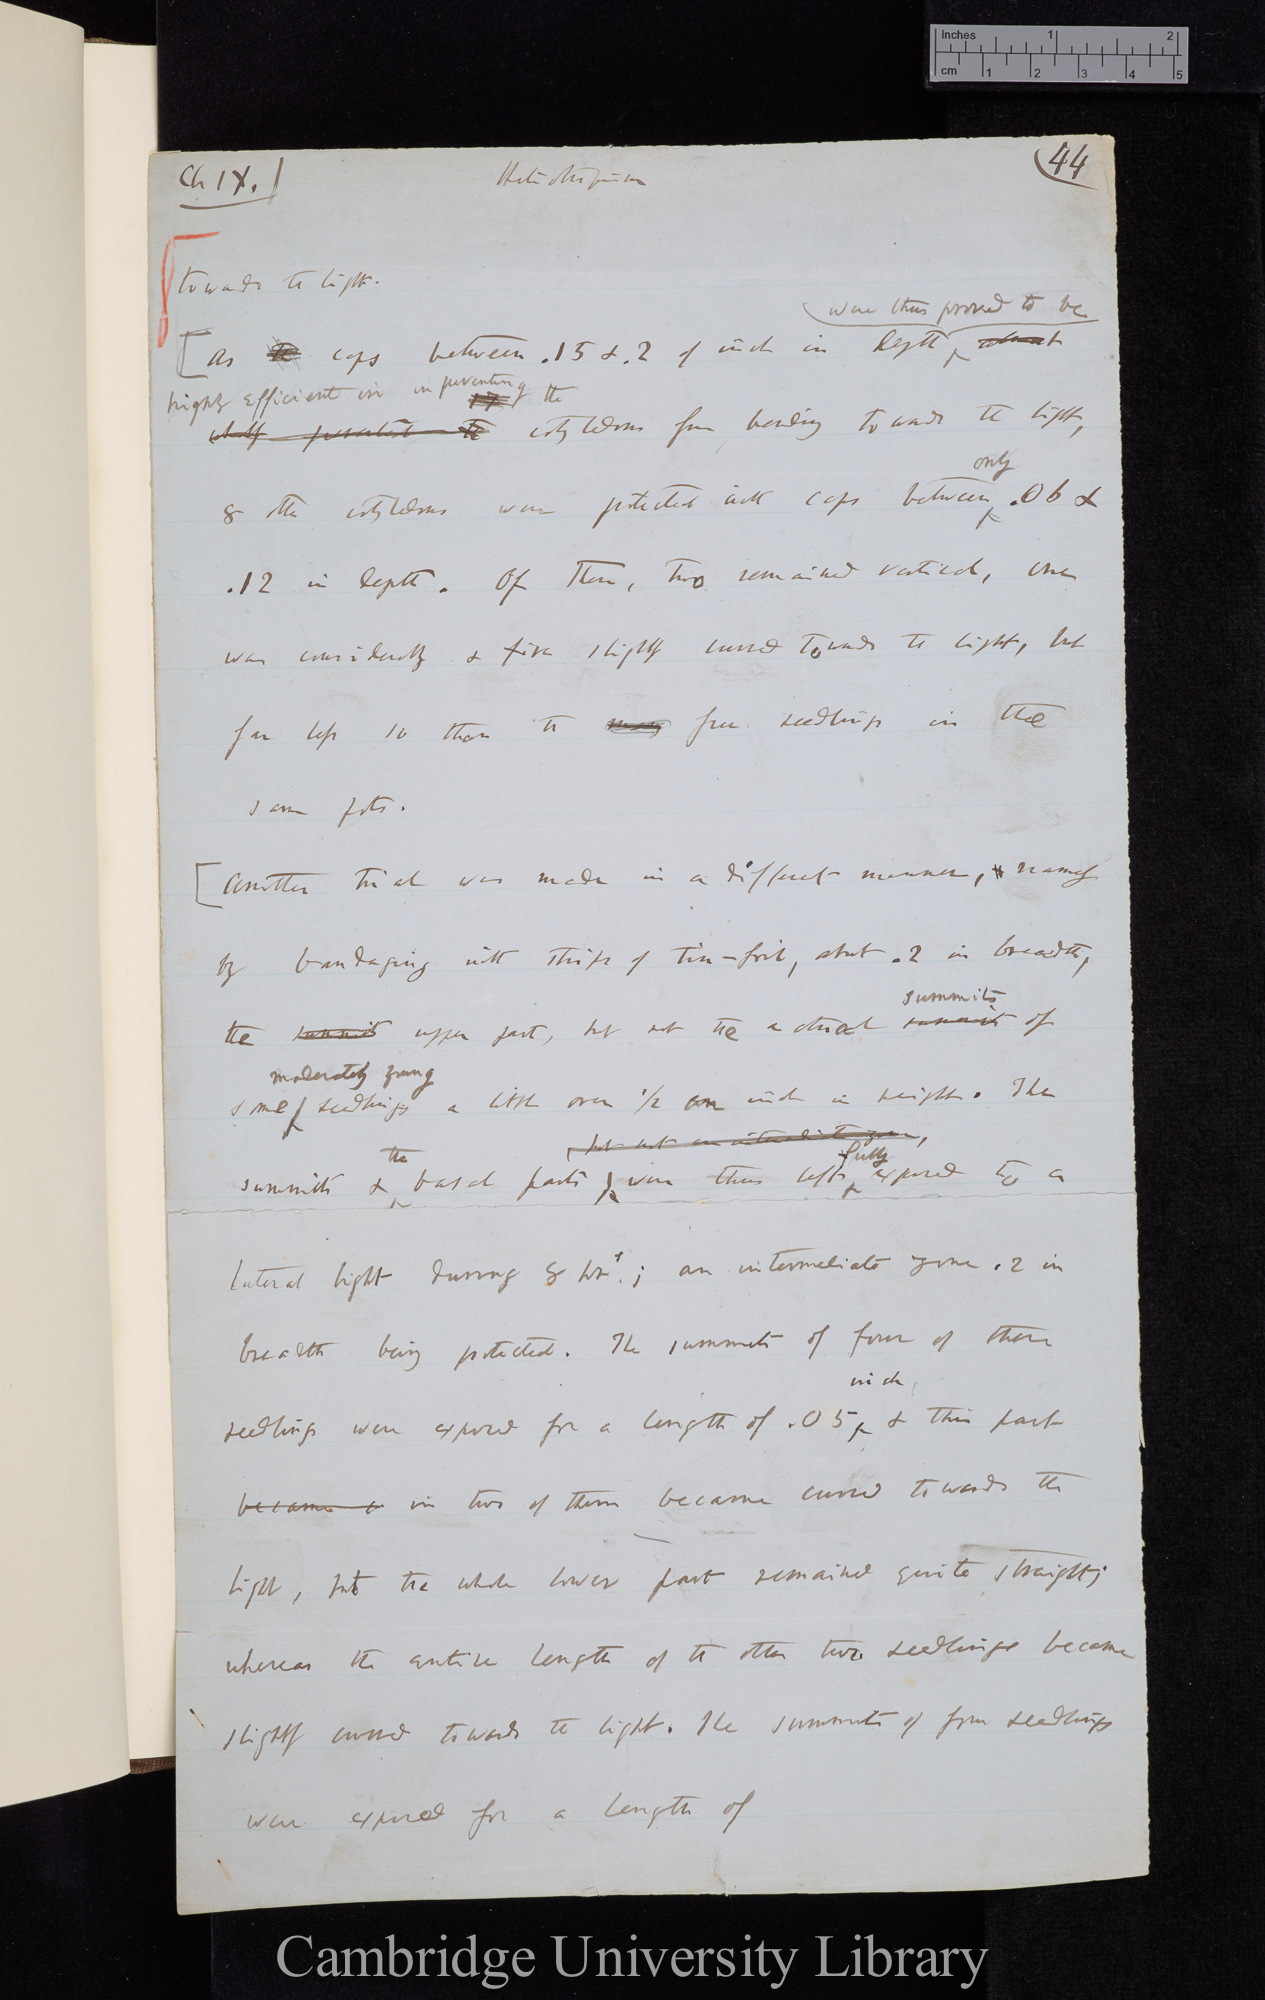 Inches 1 2
cm 1 2 3 4 5
Ch IX.
Heliotropism
44
towards the light.
were thus proved to be
As caps between .15 & .2 of inch in depth
highly efficient in preventing the
cotyledons from bending towards the light,
only
8 other cotyledons were protected with caps between .06 &
.12 in depth. Of these, two remained vertical, one
was considerably & five slightly curved towards the light, but
far less so than the free seedlings in the
same pots.
Another trial was made in a different manner, namely
by bandaging with strips of tin-foil, about .2 in breadth,
summits
the summit upper part, but not the actual summit of
moderately young
some seedlings a little over 1/2 an inch in height. The
but not an intermediate zone,
the
fully
summits & basal parts were thus left exposed to a
lateral light during 8 hrs.; an intermediate zone .2 in
breadth being protected. The summits of four of these
inch,
seedlings were exposed for a length of .05 & this part
became c in two of them became curved towards the
light, but the whole lower part remained quite straight;
whereas the entire length of the other two seedlings became
slightly curved towards the light. The summits of four seedlings
were exposed for a length of
Cambridge University Library